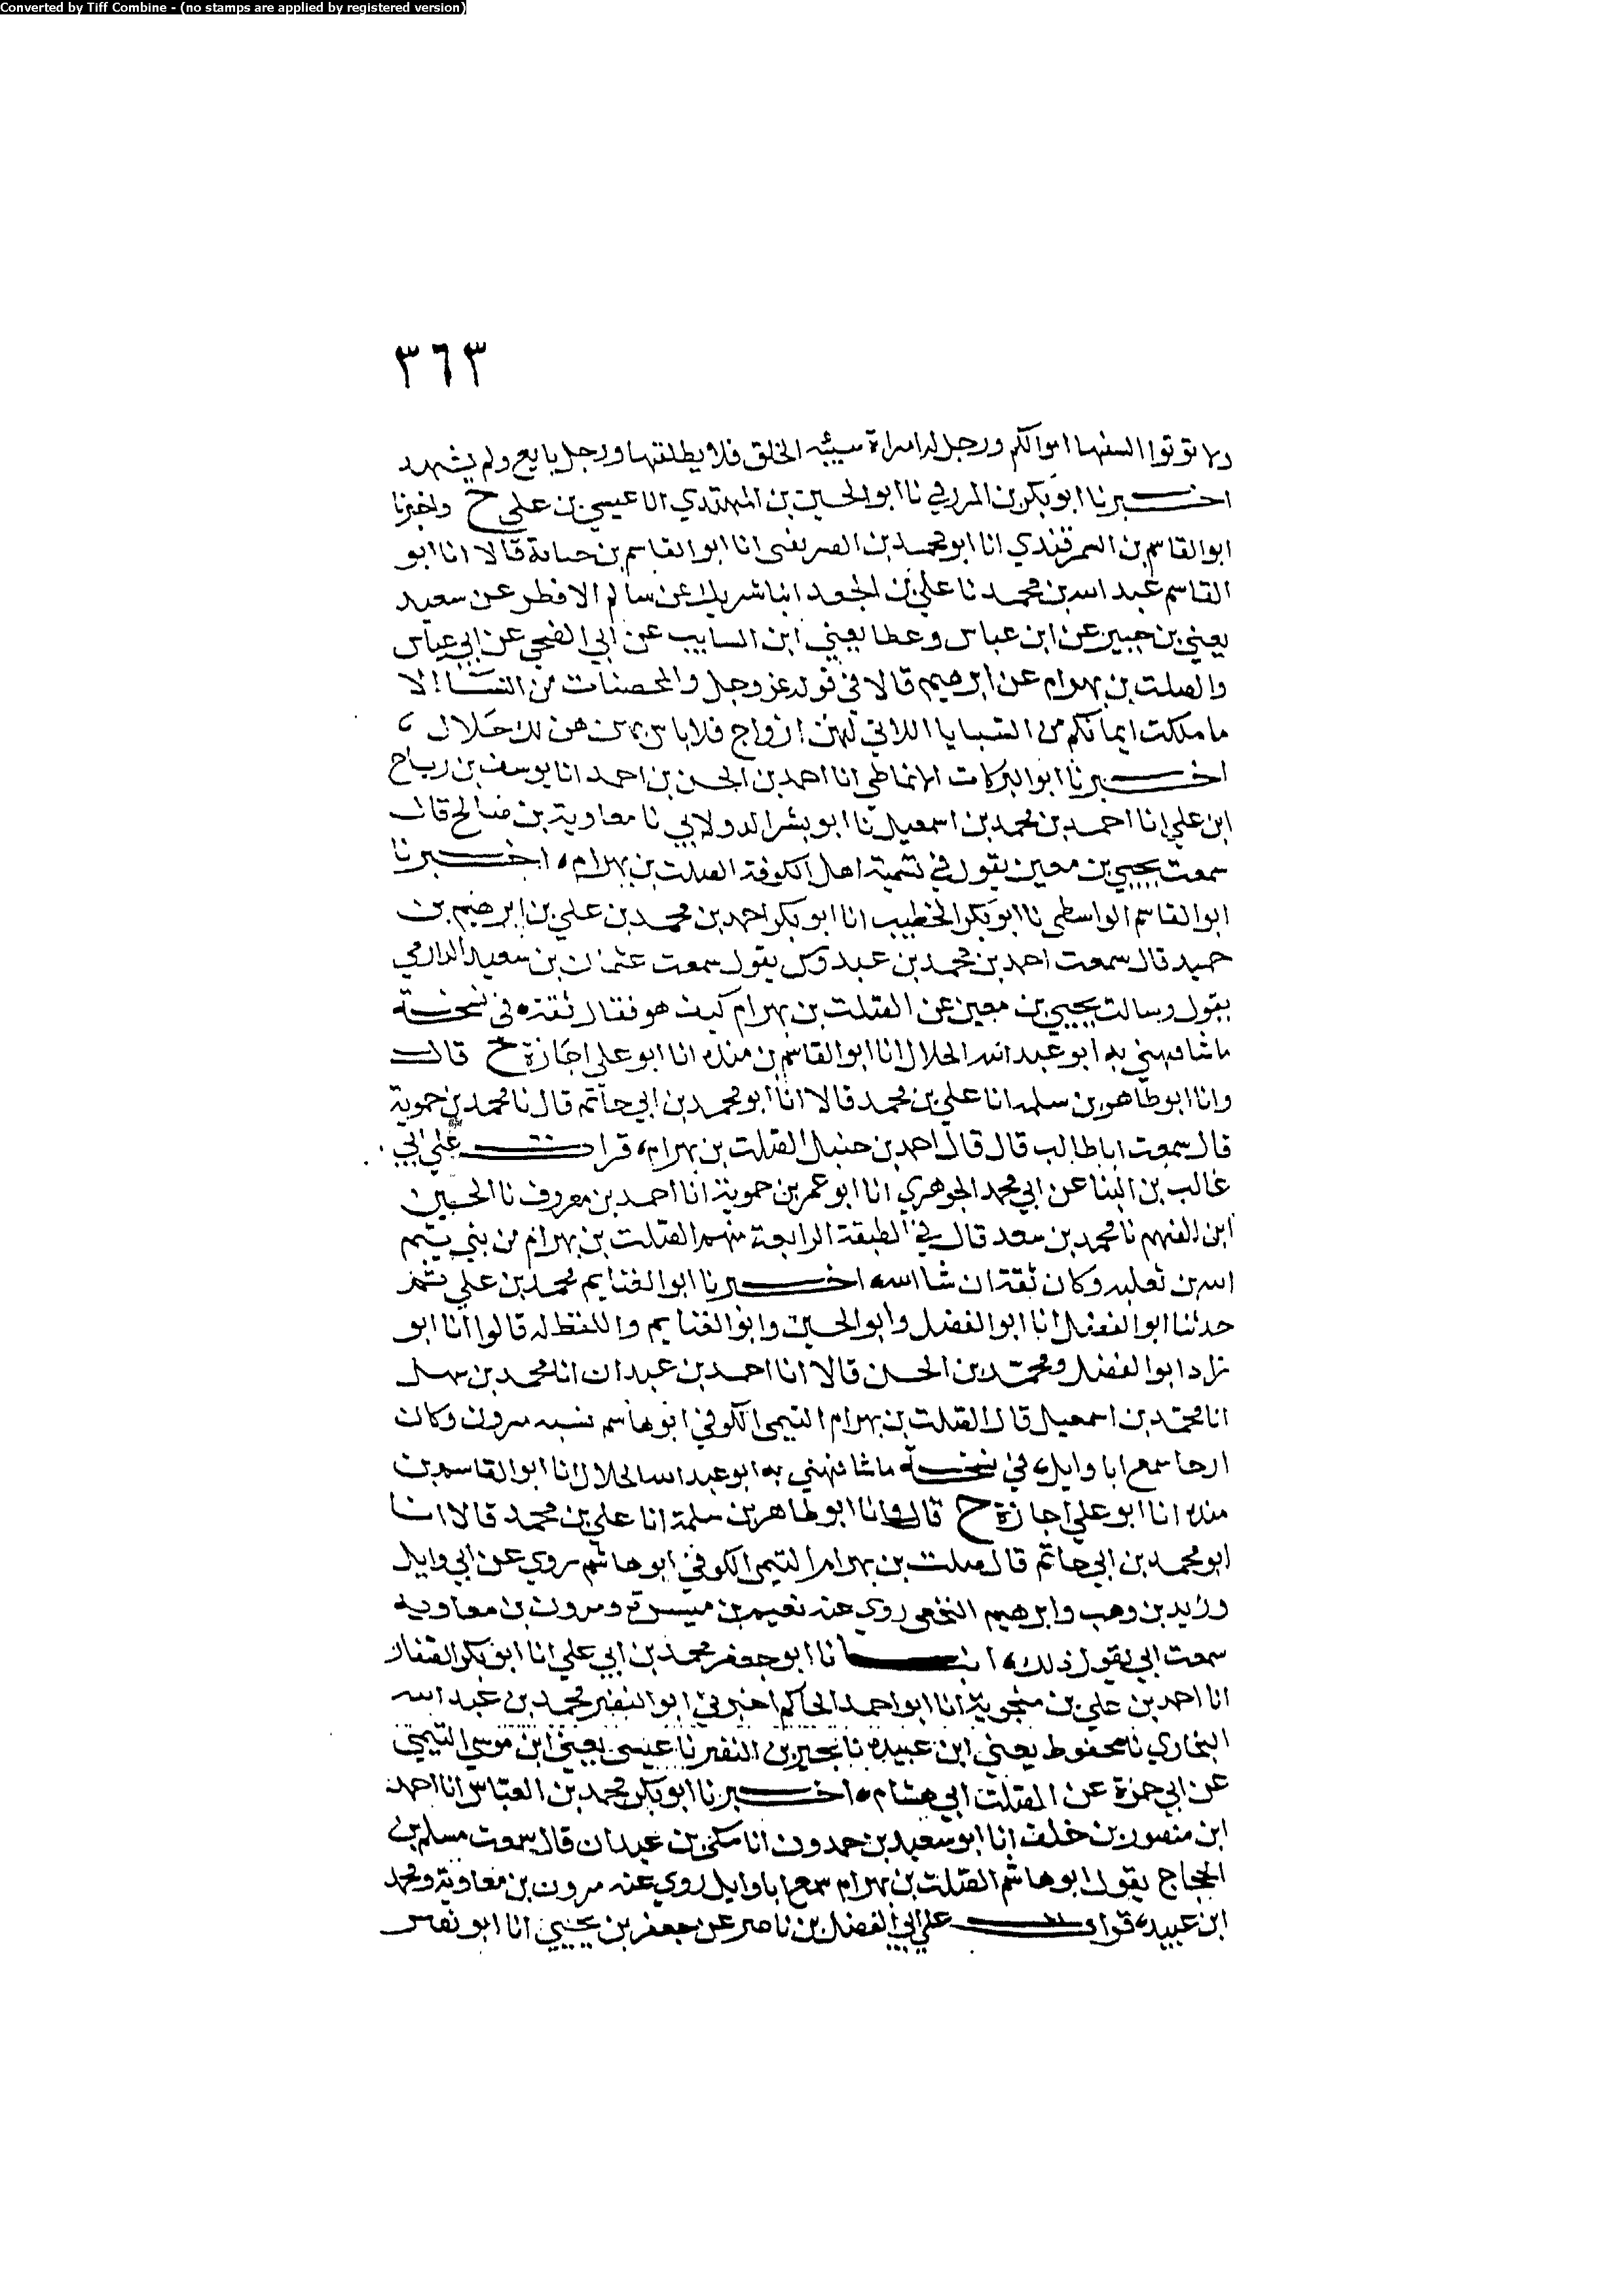 Converted by Tiff Combine - (no stamps are applied by registered version)
٣٦٣
ولا توتوا السفها اموالكم ورجل له امراة سيئه الخلق فلا يطلقها ورجل بايع ولم يشهد
اخبرنا ابو بكر بن المزرفي نا ابو الحسين بن المهتدي انا عيسي بن علي ح واخبرنا
ابو القاسم بن السمرقندي انا ابو محمد بن الصريفى انا ابو القاسم بن حبابة قالا انا ابو
القاسم عبد الله بن محمد نا علي بن الجعد انبا شريك عن سالم الافطر عن سعيد
يعني بن جبير عن ابن عباس وعطا يعني ابن السايب عن ابي الضحي عن ابن عباس
والصلت بن بهرام عن ابرهيم قالا في قوله عز وجل والمحصنات من النسا الا
ما ملكت ايمانكم من السبايا اللاتي لهن ازواج فلا باس بهن هن لك حلال ،
اخبرنا ابو البركات الانماطي انا احمد بن الحسن بن احمد انا يوسف بن رباح
ابن علي انا احمد بن محمد بن اسمعيل نا ابو بشر الدولابي نا معاوية بن صالح قال
سمعت يحيي بن معين يقول في تسمية اهل الكوفة الصلت بن بهرام ، اخبرنا
ابو القاسم الواسطي نا ابو بكر الخطيب انا ابو بكر احمد بن محمد بن علي بن ابرهيم بن
حميد قال سمعت احمد بن محمد بن عبدوس يقول سمعت عثمان بن سعيد الدارمي
يقول وسالت يحيي بن معين عن الصلت بن بهرام كيف هو فقال ثقة ، في نسخة
ما شافهني به ابو عبد الله الخلال انا ابو القاسم بن منده انا ابو علي اجازة ح قال
وانا ابو طاهر بن سلمه انا علي بن محمد قالا انا ابو محمد بن ابي حاتم قال نا محمد بن حموية
قال سمعت ابا طالب قال قال احمد بن حنبل الصلت بن بهرام ، قرات علي ابي
غالب بن البنا عن ابي محمد الجوهري انا ابو عمر بن حموية انا احمد بن معروف نا الحسين
ابن الفهم نا محمد بن سعد قال في الطبقة الرابعة منهم الصلت بن بهرام من بني تيم
الله بن ثعلبه وكان ثقة ان شا الله ، اخبرنا ابو الغنايم محمد بن علي ثم
حدثنا ابو الفضل انا ابو الفضل وابو الحسين وابو الغنايم واللفظ له قالوا انا ابو
زاد ابو الفضل ومحمد بن الحسن قالا انا احمد بن عبدان انا محمد بن سهل
انا محمد بن اسمعيل قال الصلت بن بهرام التيمي الكوفي ابو هاشم نسبه مرون وكان
ارجا سمع ابا وايل ، في نسخة ما شافهني به ابو عبد الله الخلال انا ابو القاسم بن
منده انا ابو علي اجازة ح قال وانا ابو طاهر بن سلمة انا علي بن محمد قالا انا
ابو محمد بن ابي حاتم قال صلت بن بهرام التيمي الكوفي ابو هاشم روي عن ابي وايل
وزيد بن وهب وابرهيم النخعي روي عنه نعيم بن ميسرة ومرون بن معاوية
سمعت ابي يقول ذلك ، انبانا ابو جعفر محمد بن ابي علي انا ابو بكر الصفار
انا احمد بن علي بن منجوية انا ابو احمد الحاكم اخبرني ابو النضر محمد بن عبد الله
البخاري نا محفوظ يعني ابن عبيده نا بحير بن النضر نا عيسى يعني ابن موسي التيمي
عن ابي حمزة عن الصلت ابي هشام ، اخبرنا ابو بكر محمد بن العباس انا احمد
ابن منصور بن خلف انا ابو سعيد بن حمدون انا مكي بن عبدان قال سمعت مسلم بن
الحجاج يقول ابو هاشم الصلت بن بهرام سمع ابا وايل روي عنه مرون بن معاوية ومحمد
ابن عبيد ، قرات علي ابي الفضل بن ناصر عن جعفر بن يحيي انا ابو نصر